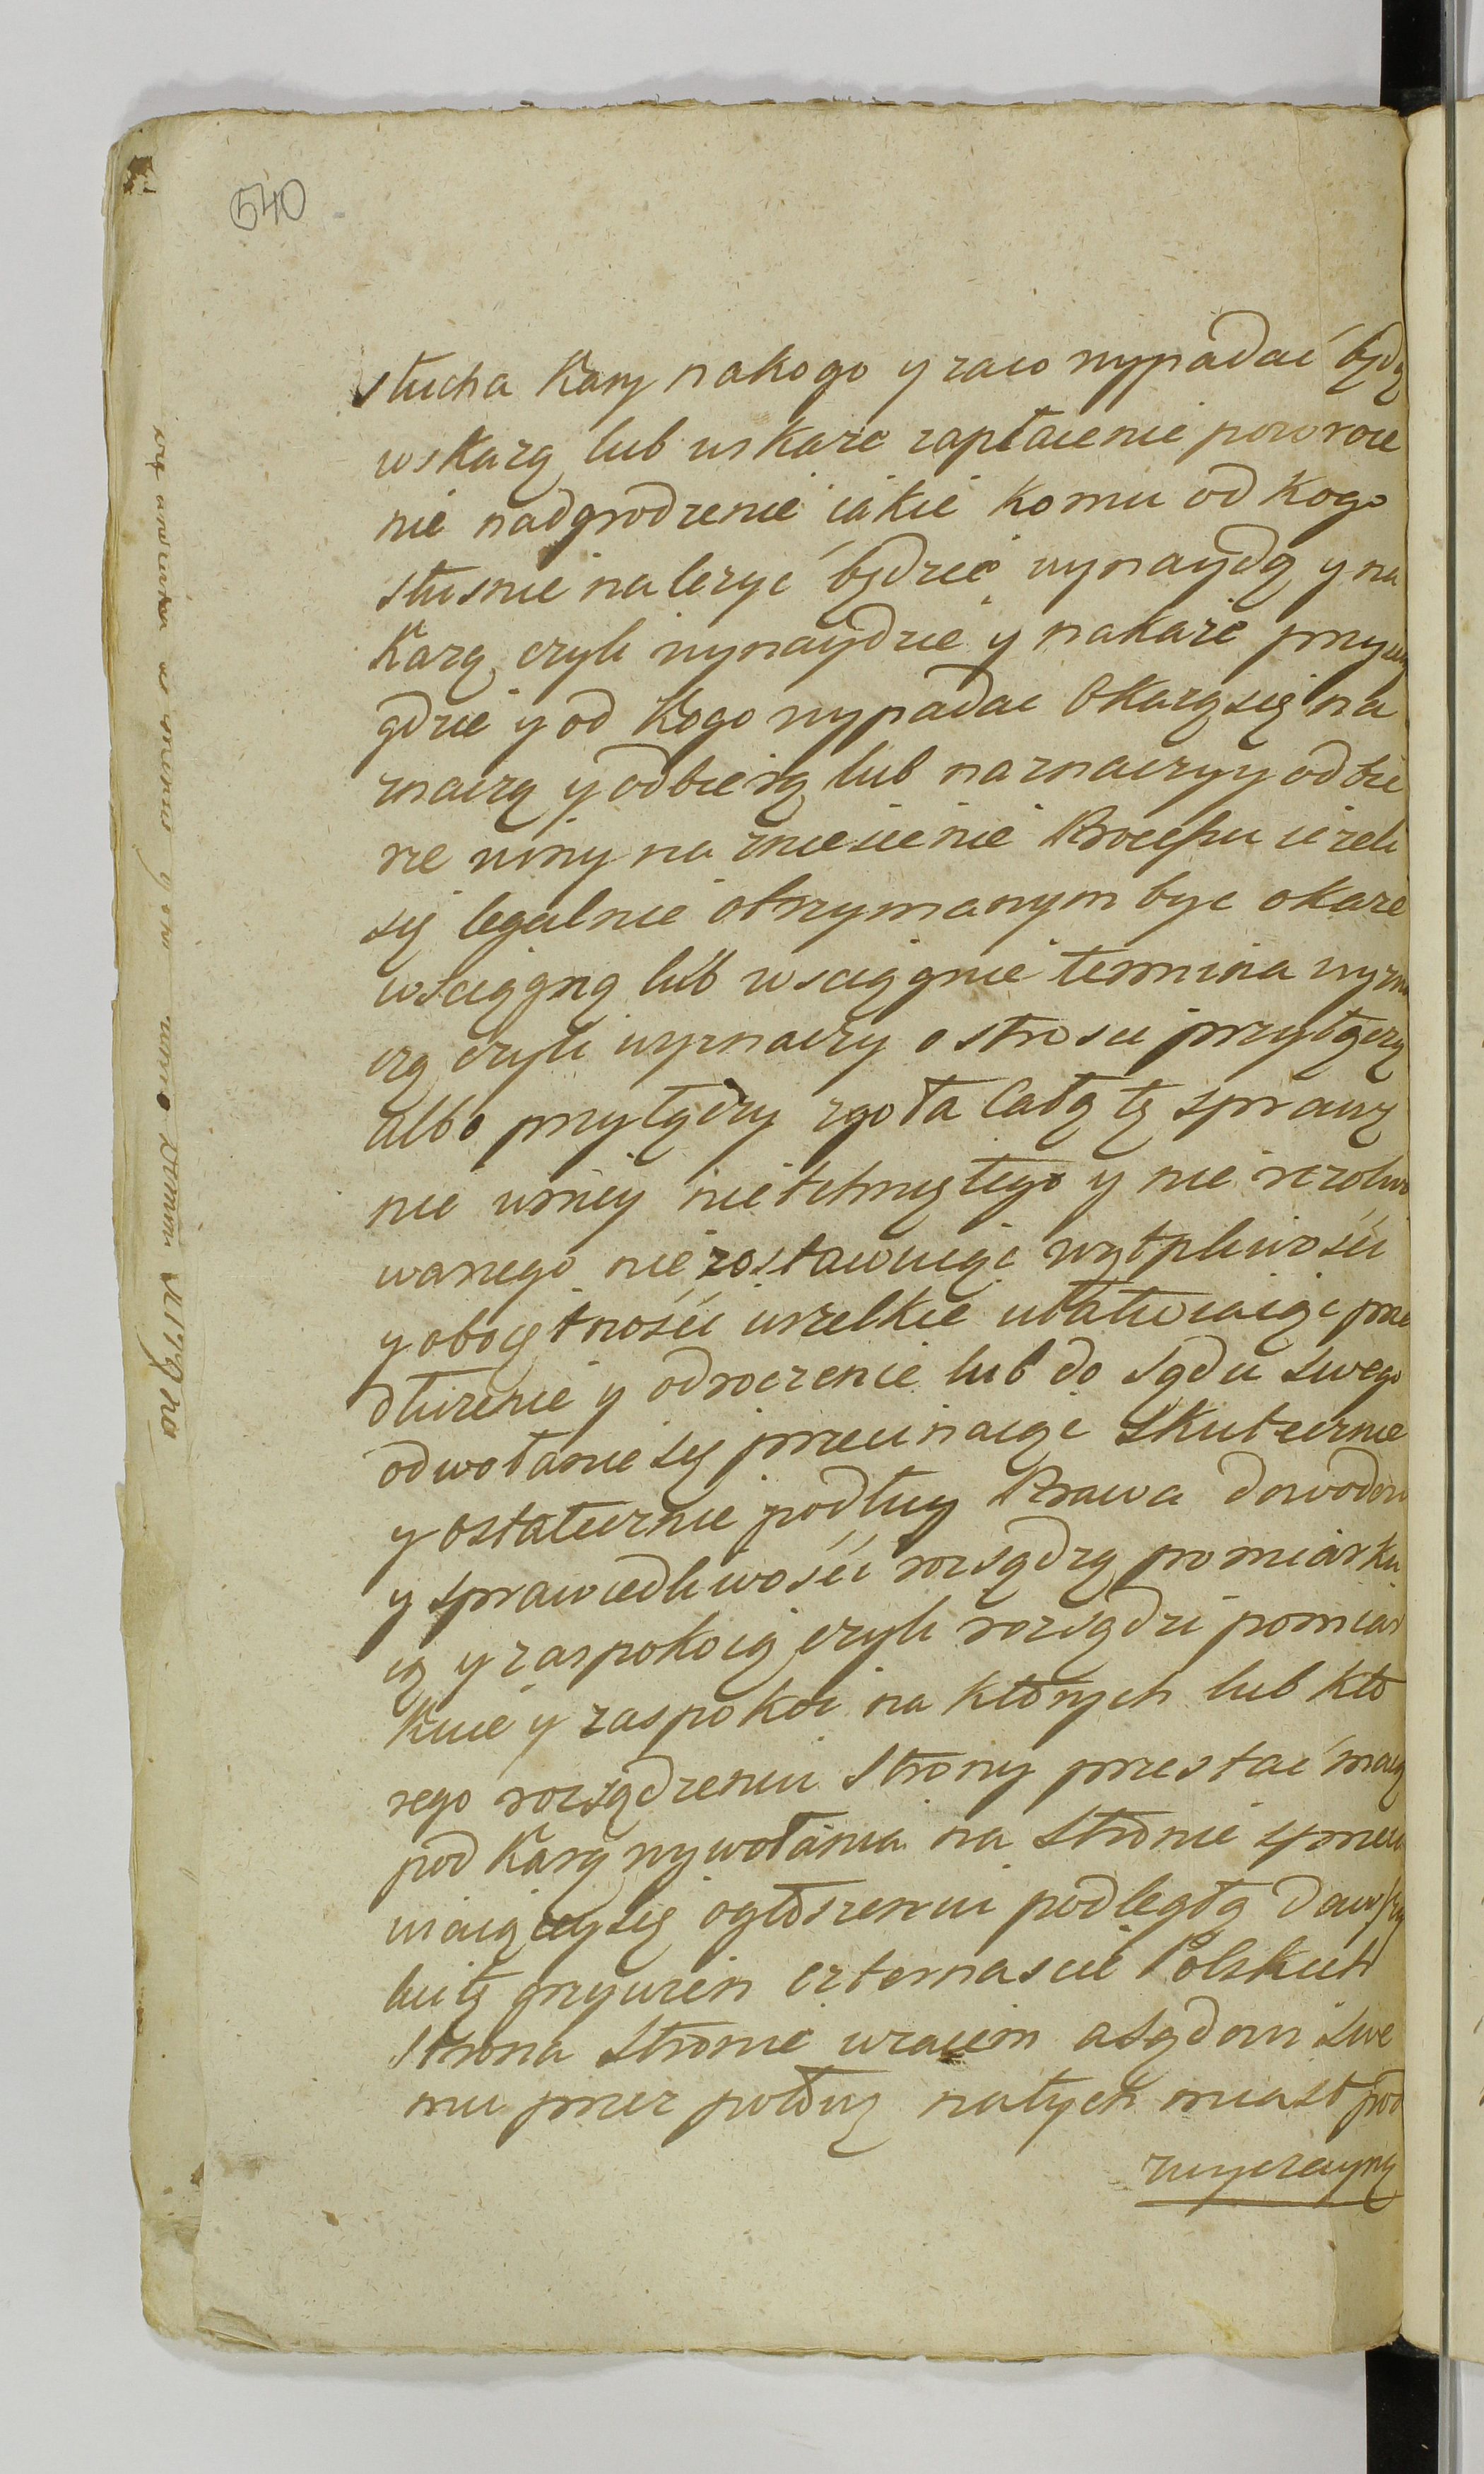 540
słucha Kary nakogo y zaco wypadać będą
wskazą lub wskaze zapłacenie powroce
nie nadgrodzenie iakie komu od kogo
słusnie nalezyć będzie wynaydą y na
Każą czyli wynaydzie y nakaże przy
gdzie y od kogo wypadac Okażą się na
znaczą y odbierą lub naznaczy y odbie
rze winy na zniesienie Processu iezeli
się legalnie otrzymanym byc okaze
wsciągną lub wsciągnie termina wyzna
czą czyli wyznaczy ostrosci przyłączą
albo przyłączy zgoła Całą tę sprawę
nic wniey nietchniętego y nie rezolwo
wanego niezostawuiąc wątpliwośći
y oboiętnośći wszelkie ułatwiaiąc prze
dłuzenie y odroczenie lub do Sądu swego
odwołanie się przecinaiąc Skutecznie
y ostatecznie podług Prawa dowodow
y sprawiedliwośći rozsądzą pomiarku
ią y zaspokoią czyli rozsądzi pomiar
kuie y zaspokoi na których lub któ
rego rozsądzeniu Strony przestać maią
pod Karą wywołania na Stronie sprzeci
wiaiącey się ogłoszeniu podległą daw
hitę grzywien czternascie Polskich
Strona Stronie wzaiem a Sądowi swe
mu przez połowę natych miast pod
zwyczayną